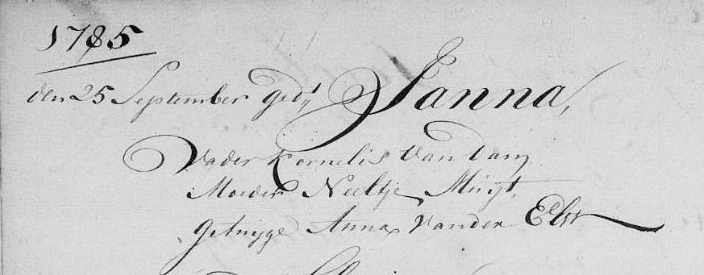 1785
den 25 September gedt Janna,
Vader Kornelis Van Dam
Moeder Neeltje
Getuyge Anna Van der Elst